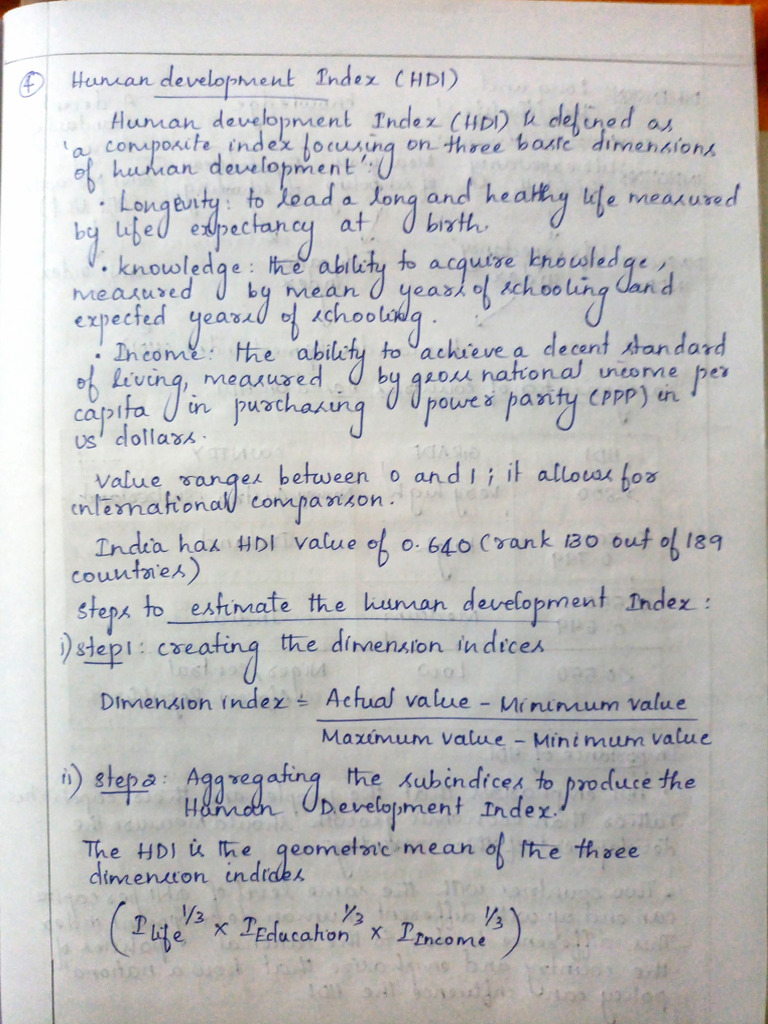 f Human development Index (HDI)
Human development Index (HDI) is defined as
'a composite index focusing on three basic dimensions
of human development':
• Longevity: to lead a long and healthy life measured
by life expectancy at birth.
• knowledge: the ability to acquire knowledge,
measured by mean years of schooling and
expected years of schooling.
• Income: the ability to achieve a decent standard
of living, measured by gross national income per
capita in purchasing power parity (PPP) in
US dollars.
value ranges between 0 and 1; it allows for
international comparison.
India has HDI value of 0.640 (rank 130 out of 189
countries)
steps to estimate the human development Index:
i) step1: creating the dimension indices
Dimension index = Actual value - Minimum value
Maximum value - Minimum value
ii) step2: Aggregating the subindices to produce the
Human Development Index.
The HDI is the geometric mean of the three
dimension indides
(I Life 1/3 x I Education 1/3 x I Income 1/3)